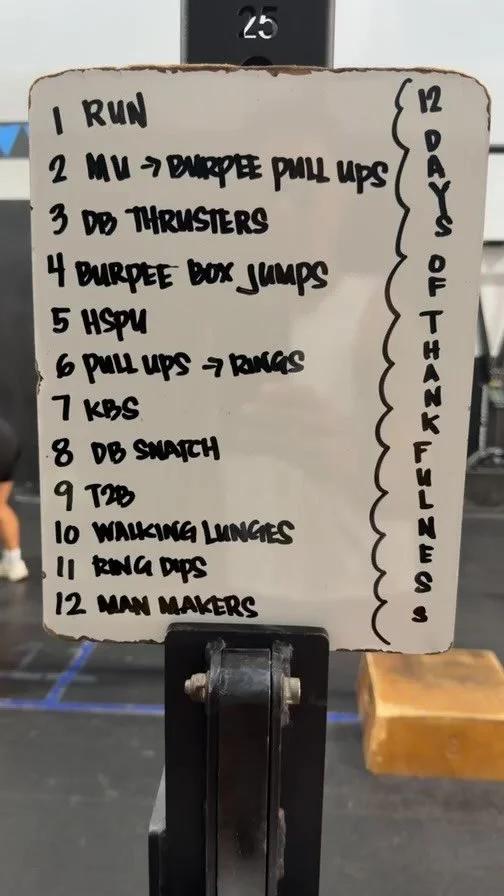 25
1 RUN
2 MU → BURPEE PULL UPS
3 DB THRUSTERS
4 BURPEE BOX JUMPS
5 HSPU
6 PULL UPS → RINGS
7 KBS
8 DB SNATCH
9 T2B
10 WALKING LUNGES
11 RING DIPS
12 MAN MAKERS
12 DAYS OF THANKFULNESS